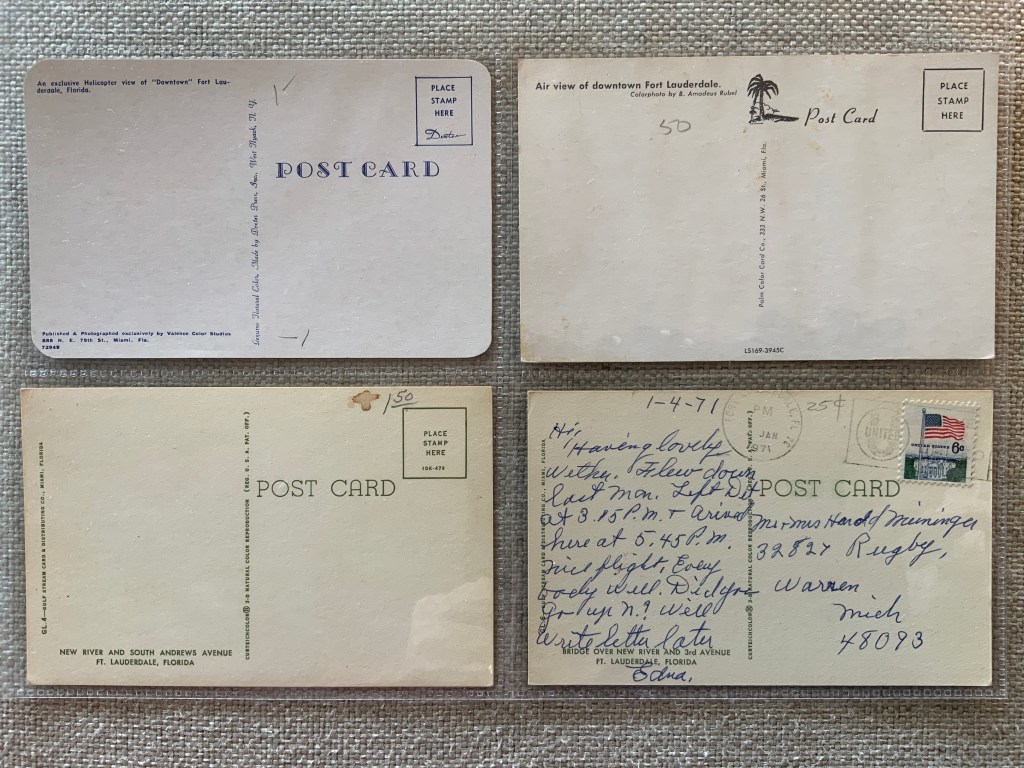 An exclusive Helicopter view of "Downtown" Fort Lau-
derdale, Florida.
PLACE
STAMP
HERE
Dexter
POST CARD
Made by Dexter Press, Inc. West Nyack, N. Y.
Published & Photographed exclusively by Valence Color Studios
888 N. E. 79th St., Miami, Fla.
73949
Air view of downtown Fort Lauderdale.
Colorphoto by B. Amadeus Rubel
50
Post Card
PLACE
STAMP
HERE
Palm Color Card Co., 333 N.W. 26 St., Miami, Fla.
LS169-3945C
1 50
PLACE
STAMP
HERE
POST CARD
GL.4—GULF STREAM CARD & DISTRIBUTING CO., MIAMI, FLORIDA
CURTEICHCOLOR® 3-D NATURAL COLOR REPRODUCTION (REG. U.S.A. PAT. OFF.)
NEW RIVER AND SOUTH ANDREWS AVENUE
FT. LAUDERDALE, FLORIDA
1-4-71
PM
JAN
1971
25¢
UNITED
UNITED STATES
6c
Hi,
Having lovely
Wether. Flew down
last Mon. Left Det
at 3.15 P.M. + arived
here at 5.45 P.M.
nice flight. Every
body well. Did you
go up N.? Will
Write letter later
Edna.
POST CARD
Mr + Mrs Harold Meininger
32827 Rugby,
Warren
Mich
48093
BRIDGE OVER NEW RIVER AND 3rd AVENUE
FT. LAUDERDALE, FLORIDA